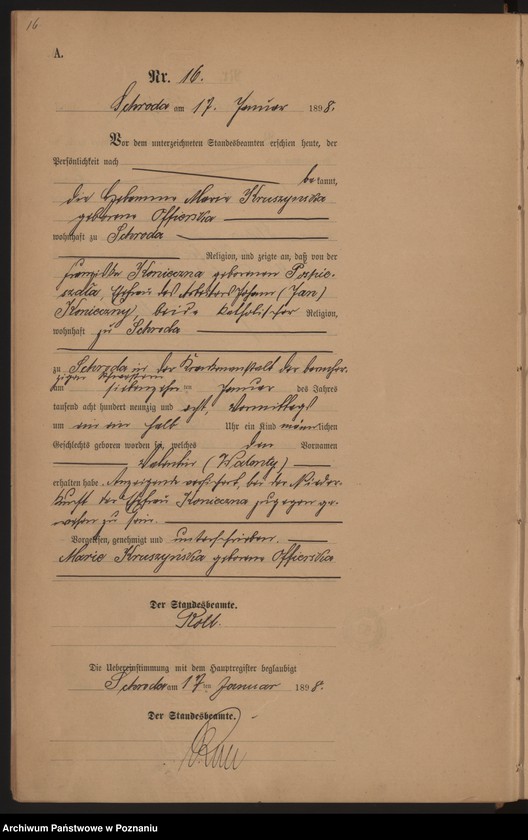 16
A.
Nr. 16.
Schroda am 17. Januar 1898.
Vor dem unterzeichneten Standesbeamten erschien heute, der
Persönlichkeit nach
bekannt,
die Hebamme Marie Kruszynska
geborene Offierska
wohnhaft zu Schroda
Religion, und zeigte an, daß von der
Franziska Konieczna geborenen
Ehefrau des Arbeiters Johann (Jan)
Konieczny, beide katholischer Religion,
wohnhaft zu Schroda
zu Schroda in der Krankenanstalt der barmher-
zigen Schwestern
am siebenzehnten Januar des Jahres
tausend acht hundert neunzig und acht, Vormittags
um ein ein halb Uhr ein Kind männlichen
Geschlechts geboren worden sei, welches den Vornamen
Valentin (Walenty)
erhalten habe. Anzeigende versichert, bei der Nieder-
kunft der Ehefrau Konieczna zugegen ge-
wesen zu sein.
Vorgelesen, genehmigt und unterschrieben.
Marie Kruszyńska geborene Offierska
Der Standesbeamte.
Die Uebereinstimmung mit dem Hauptregister beglaubigt
Schroda am 17ten Januar 1898.
Der Standesbeamte.
Archiwum Państwowe w Poznaniu